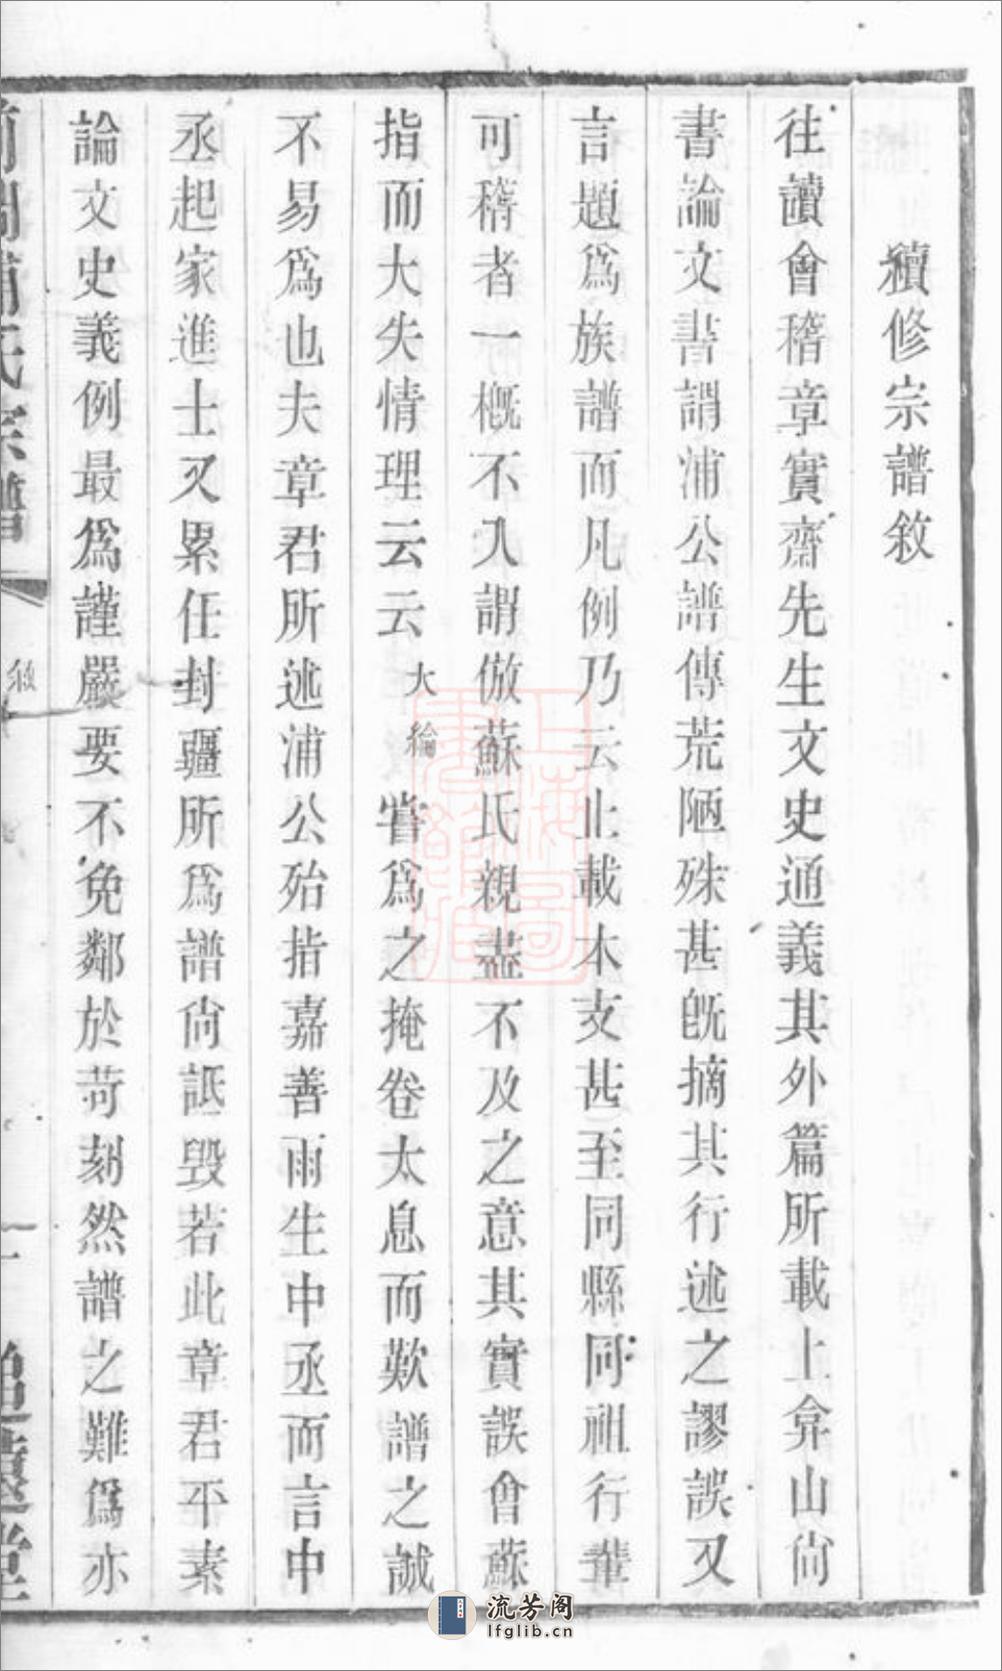 續修宗譜敘
往讀會稽章實齋先生文史通義其外篇所載上弇山尙
書論文書謂浦公譜傳荒陋殊甚旣摘其行述之謬誤又
言題爲族譜而凡例乃云止載本支甚至同縣同祖行輩
可稽者一槪不入謂倣蘇氏親盡不及之意其實誤會蘇
指而大失情理云云大綸嘗爲之掩卷太息而歎譜之誠
不易爲也夫章君所述浦公殆指嘉善雨生中丞而言中
丞起家進士又累任封疆所爲譜尙詆毀若此章君平素
論文史義例最爲謹嚴要不免鄰於苛刻然譜之難爲亦
浦氏宗譜
敘
一
上海圖書館藏
流芳阁
lfglib.cn